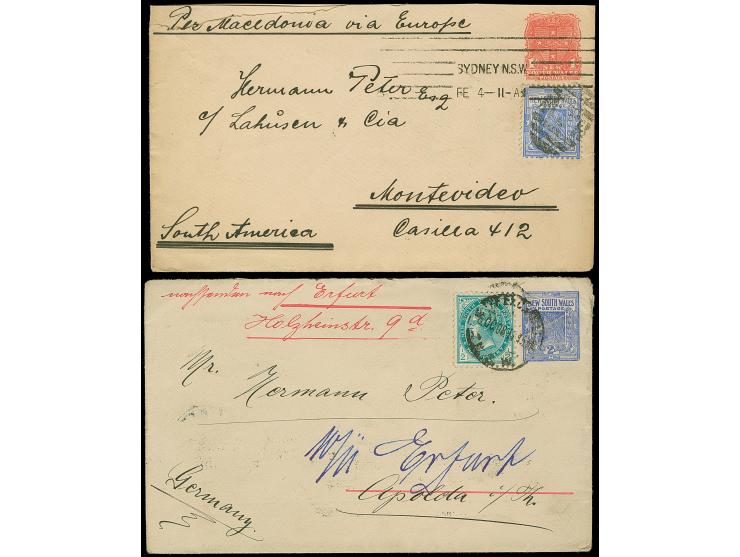 Per Macedonia via Europe
NEW
SOUTH WALES
POSTAGE
SYDNEY N.S.W
FE 4-11-A
Hermann Peter Esq
c/ Lahusen & Cia
Montevideo
South America
Casilla 412
nachsenden nach Erfurt
Holzheinstr. 9 d
NEW SOUTH WALES
POSTAGE
Mr. Hermann Peter.
Erfurt
Apolda i/Th.
Germany.